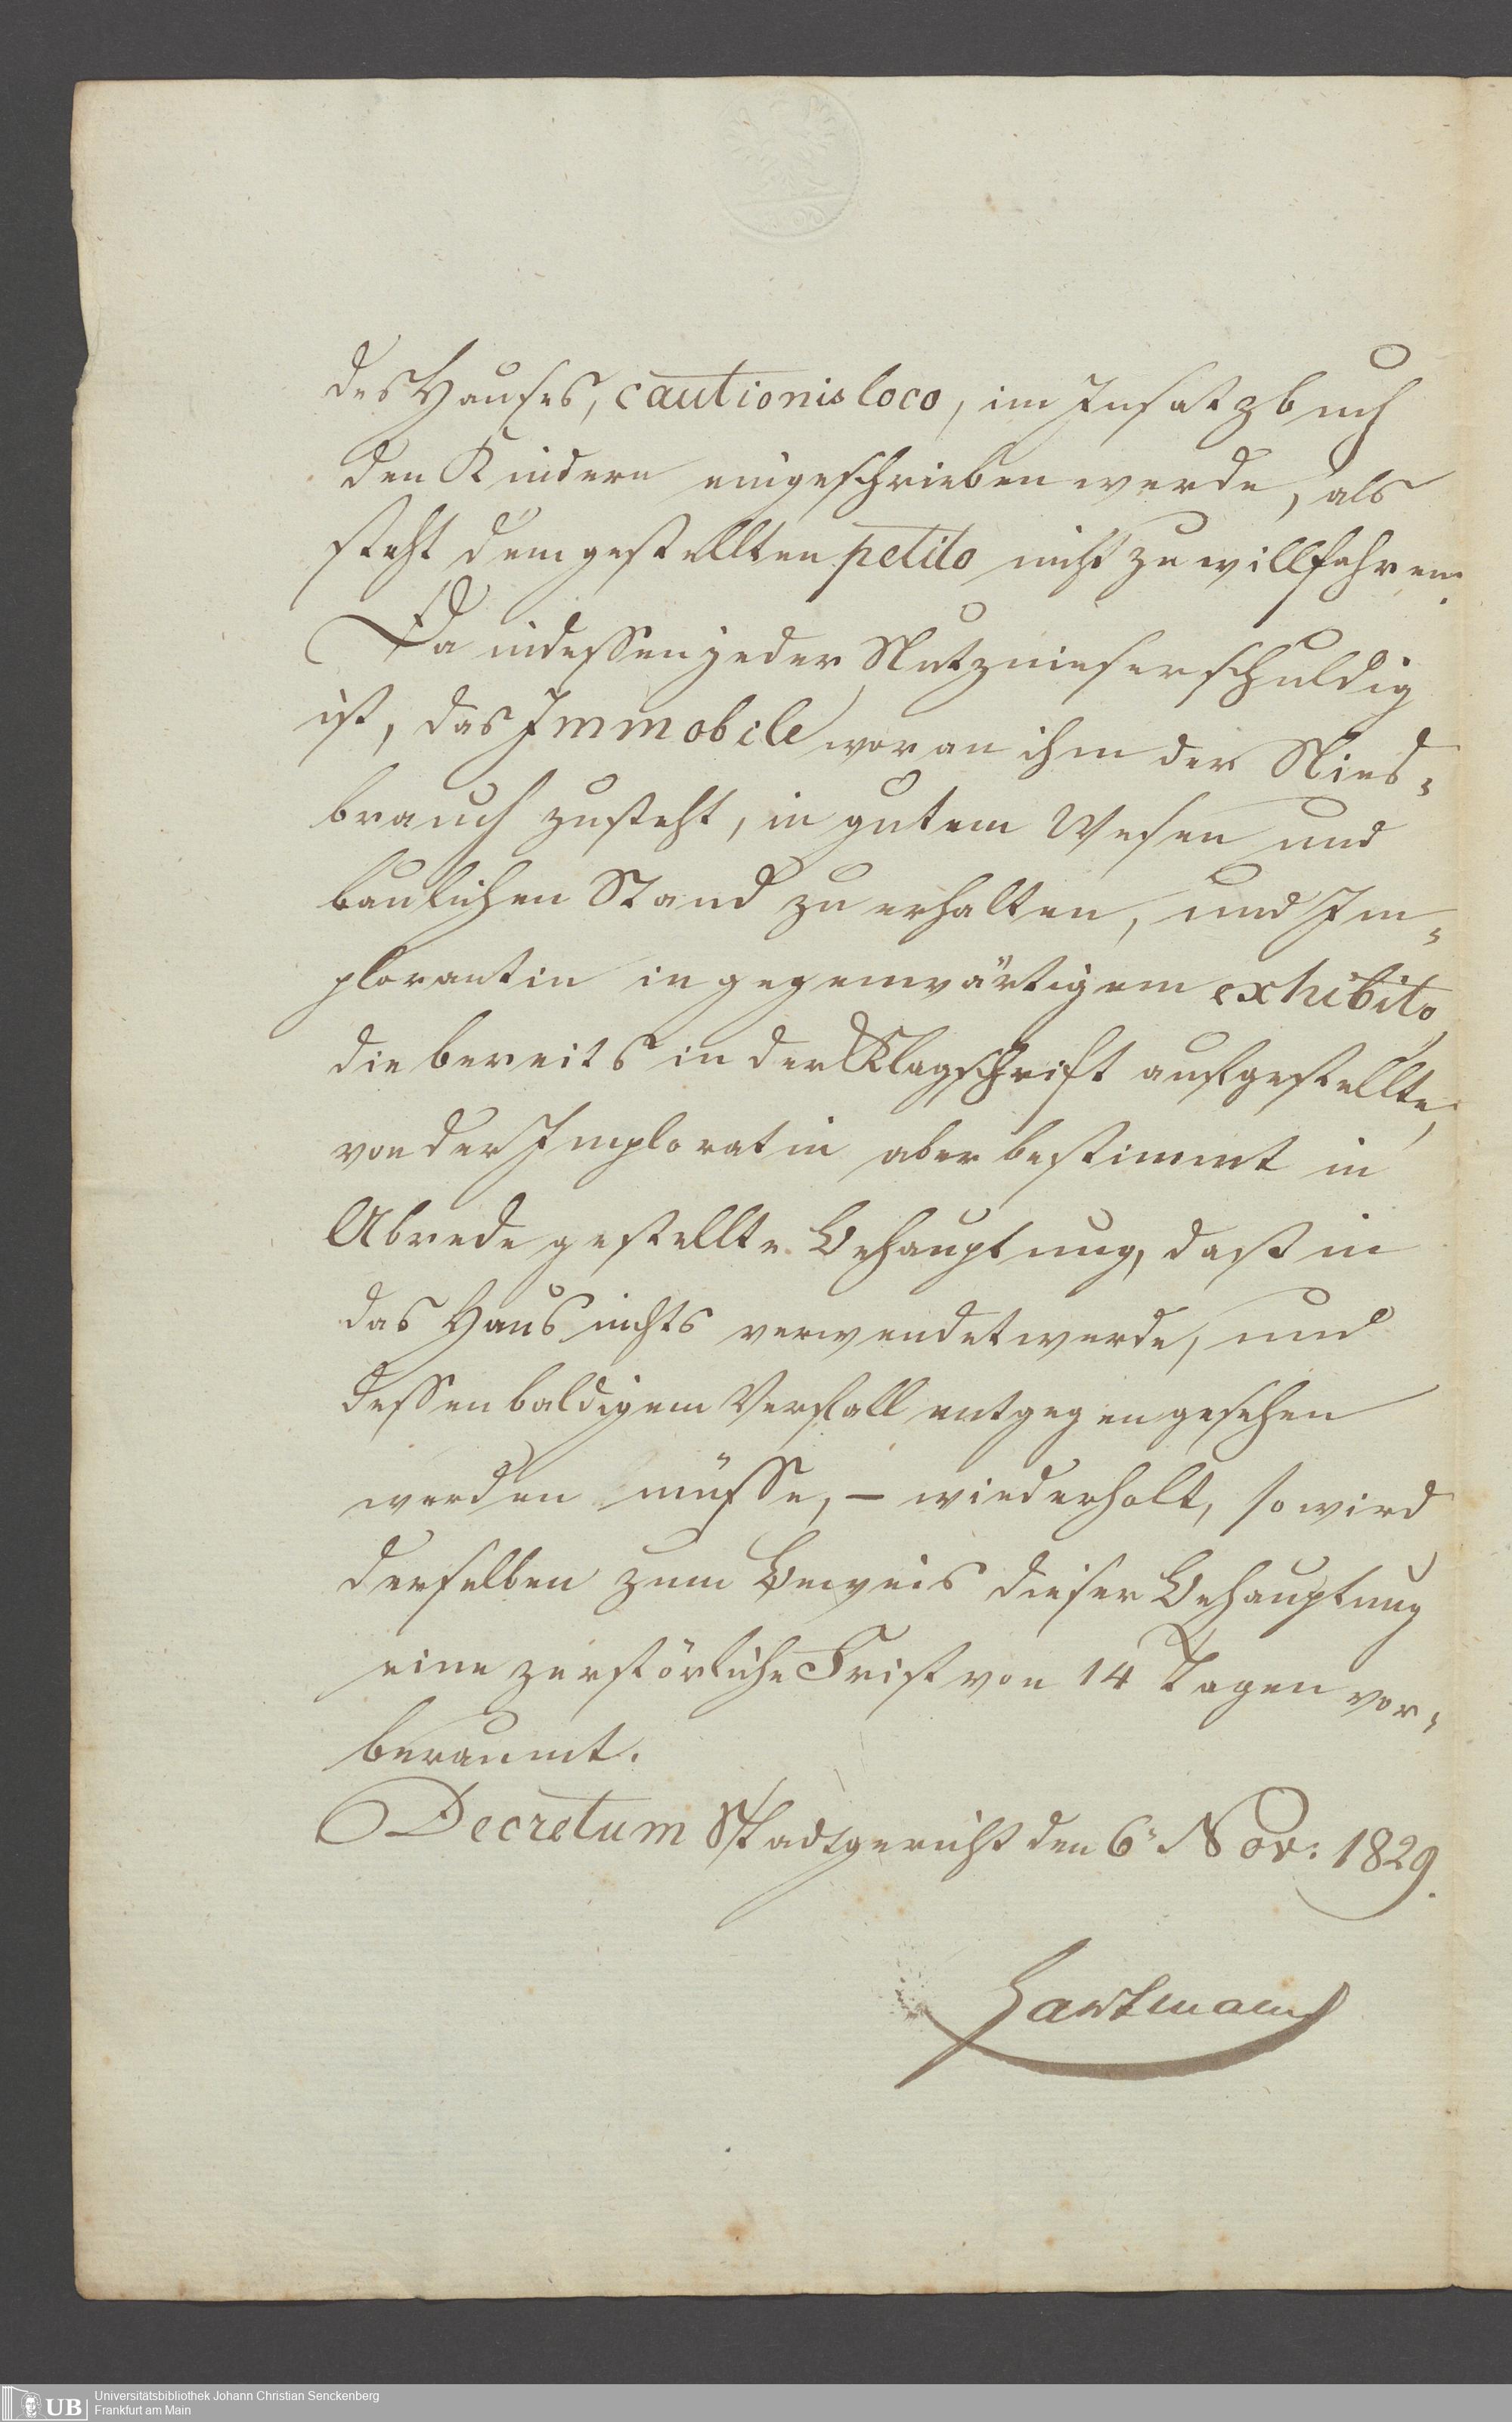 des Hauses, cautionis loco, im Insatzbuch
den Kindern eingeschrieben werde, als
steht dem gestellten petito nicht zu willfahren.
Da indessen jeder Nutznieser schuldig
ist, das Immobile woran ihm der Nies-
brauch zusteht, in gutem Wesen und
baulichen Stand zu erhalten, und Im-
plorantin in gegenwärtigem exhibito
die bereits in der Klagschrift aufgestellte,
von der Imploratin aber bestimmt in
Abrede gestellte Behauptung, daß in
das Haus nichts verwendet werde, und
dessen baldigem Verfall entgegen gesehen
werden müsse, – wiederholt, so wird
derselben zum Beweis dieser Behauptung
eine zerstörliche Frist von 14 Tagen vor-
beraumt.
Decretum Stadtgericht den 6r Nov: 1829.
Hartmann
UB
Universitätsbibliothek Johann Christian Senckenberg
Frankfurt am Main